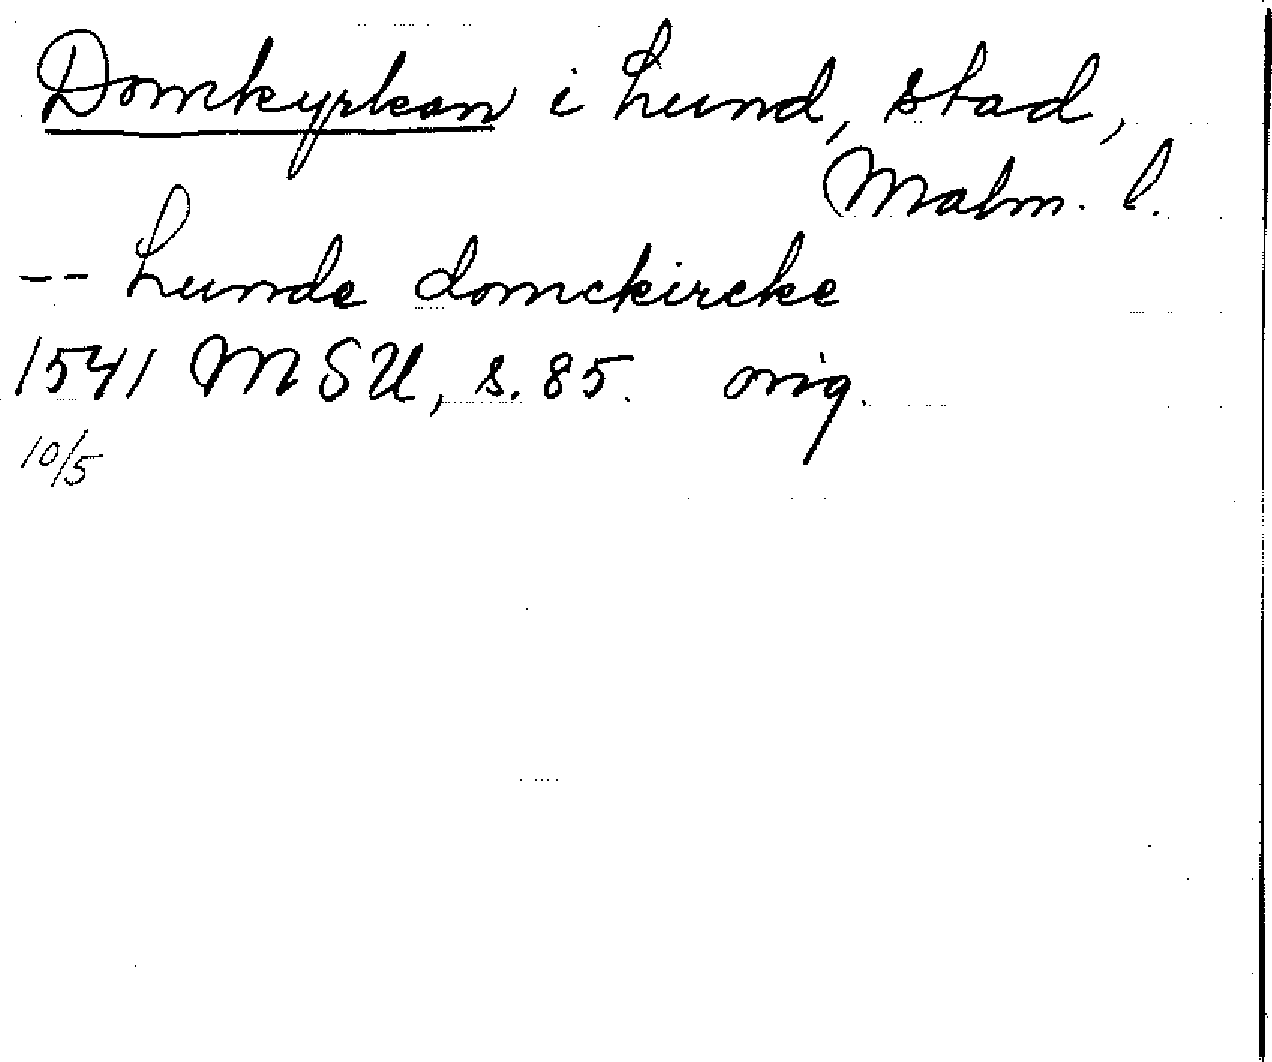 Domkyrkan i Lund, stad,
Malm. l.
-- Lunde domckircke
1541 MSU, s. 85. orig.
10/5